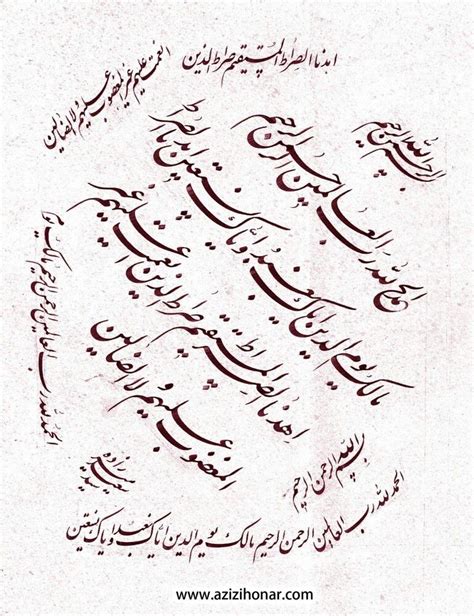 اهدنا الصراط المستقیم صراط الذین
انعمت علیهم غیر المغضوب علیهم ولا الضالین
بسم الله الرحمن الرحیم
الحمد لله رب العالمین الرحمن الرحیم
مالک یوم الدین ایاک نعبد و ایاک نستعین اهدنا الصراط
اهدنا الصراط المستقیم صراط الذین انعمت علیهم غیر
المغضوب علیهم ولا الضالین
الحمد لله رب العالمین الرحمن الرحیم مالک یوم
بسم الله الرحمن الرحیم
الحمد لله رب العالمین الرحمن الرحیم مالک یوم الدین ایاک نعبد و ایاک نستعین
www.azizihonar.com